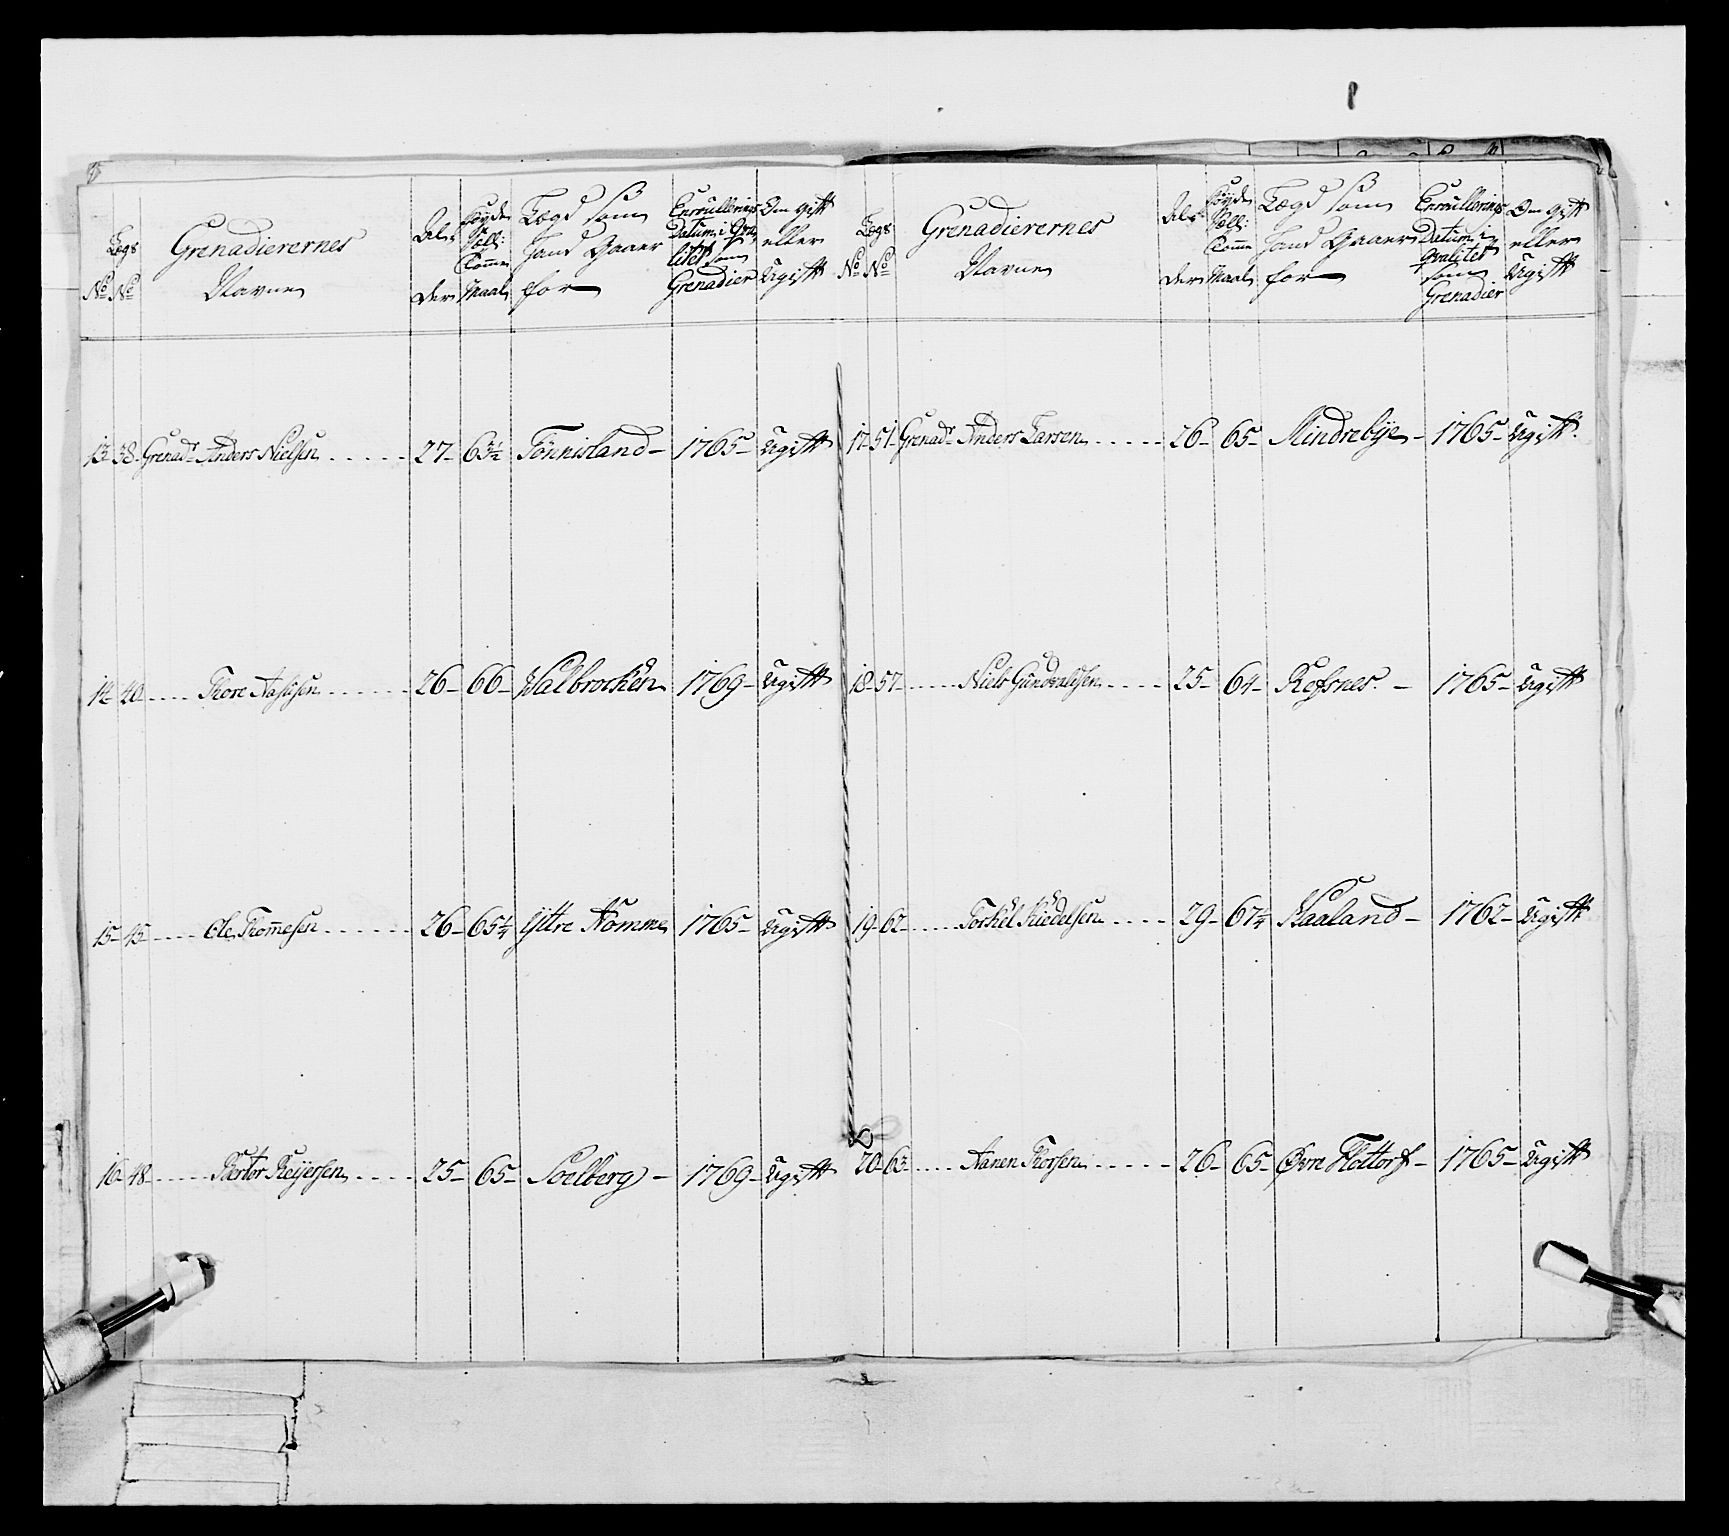 Lægs
No No
Grenadierernes
Navne
Al-
der
Høyde
Maal
Lægd som
hand Gaaer
for
Enroullerings
Datum i Qva
litet som
Grenadier
Om gift
eller
Ugift
13- 38- Grenadr Anders Nielsen 27- 63½ Tönnisland- 1765- Ugift
14- 40 Thore Aasusen 26- 66- Walbrocken 1769- Ugift
15- 45- Ole Thommesen 26- 65¼ Yttre Homme 1765- Ugift
16- 48- Reijersen 25- 65- Soelberg- 1769- Ugift
Lægs
No No
Grenadierernes
Navne
Al-
der
Høyde
Maal
Lægd som
hand Gaaer
for
Enroullerings
Datum i
Qvalitet
som
Grenadier
Om gift
eller
Ugift
17- 51- Grenadr Anders Larsen 26- 65- Mindrebije- 1765- Ugift
18- 57- Niels Gundvaldsen 25- 64- Rosnes- 1765- Ugift
19- 62- Torkel Kiedelsen 29- 67¼ Haaland- 1762- Ugift
20- 63- Aanen Thorsen 26- 65- Øvre Flottorf- 1765- Ugift